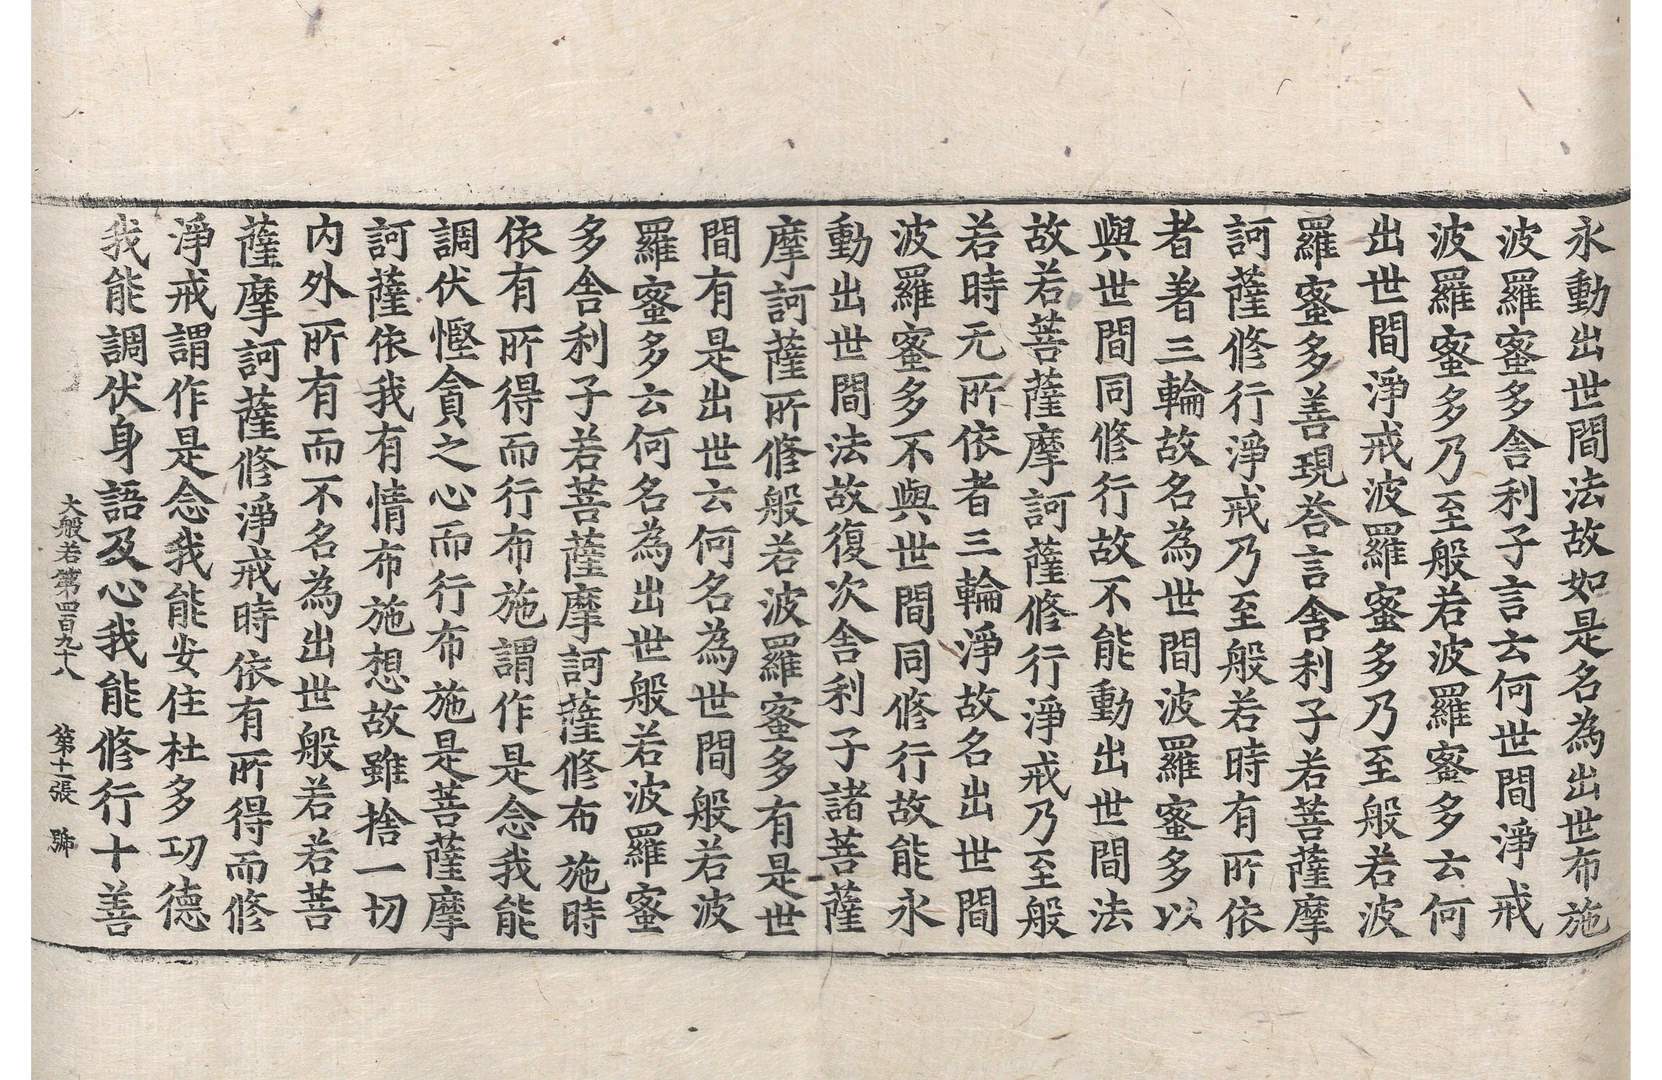 永動出世間法故如是名為出世布施
波羅蜜多舍利子言云何世間淨戒
波羅蜜多乃至般若波羅蜜多云何
出世間淨戒波羅蜜多乃至般若波
羅蜜多善現荅言舍利子若菩薩摩
訶薩修行淨戒乃至般若時有所依
者著三輪故名為世間波羅蜜多以
與世間同修行故不能動出世間法
故若菩薩摩訶薩修行淨戒乃至般
若時无所依者三輪淨故名出世間
波羅蜜多不與世間同修行故能永
動出世間法故復次舍利子諸菩薩
摩訶薩所修般若波羅蜜多有是世
間有是出世云何名為世間般若波
羅蜜多云何名為出世般若波羅蜜
多舍利子若菩薩摩訶薩修布施時
依有所得而行布施謂作是念我能
調伏慳貪之心而行布施是菩薩摩
訶薩依我有情布施想故雖捨一切
內外所有而不名為出世般若若菩
薩摩訶薩修淨戒時依有所得而修
淨戒謂作是念我能安住杜多功德
我能調伏身語及心我能修行十善
大般若第四百九十八 第十一張 號